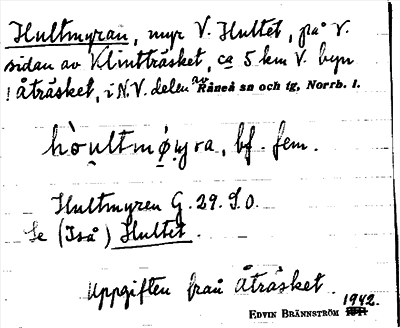 Hultmyran, myr V. Hultet, på V.
sidan av Klintträsket, ca 5 km V. byn
Åträsket, i N.V. delen av Råneå sn och tg, Norrb. l.
hòu̥ltmǿ̥yra, bf. fem.
Hultmyren G. 29. S.O.
Se (Iså) Hultet.
Uppgiften från Åträsket.
EDVIN BRÄNNSTRÖM 1942.